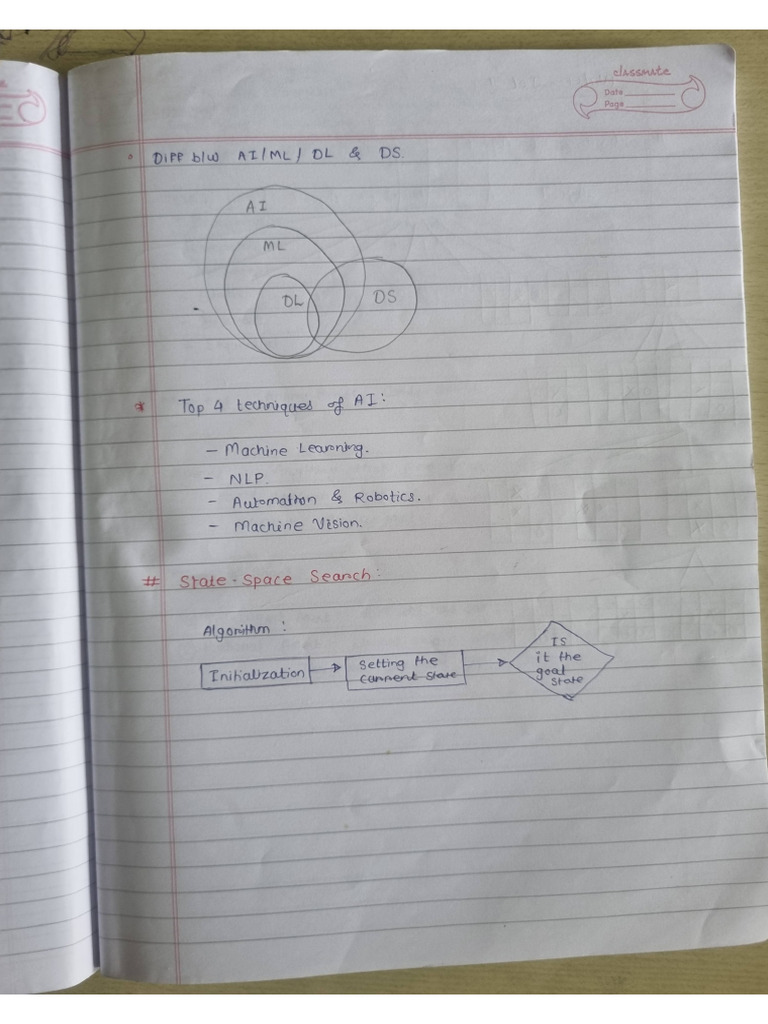 classmate
Date
Page
Diff b/w AI/ML/ DL & DS.
AI
ML
DL
DS
Top 4 techniques of AI:
- Machine Learning.
- NLP.
- Automation & Robotics.
- Machine Vision.
# State-Space Search:
Algorithm :
Initialization
Setting the
current state
Is
it the
goal
state